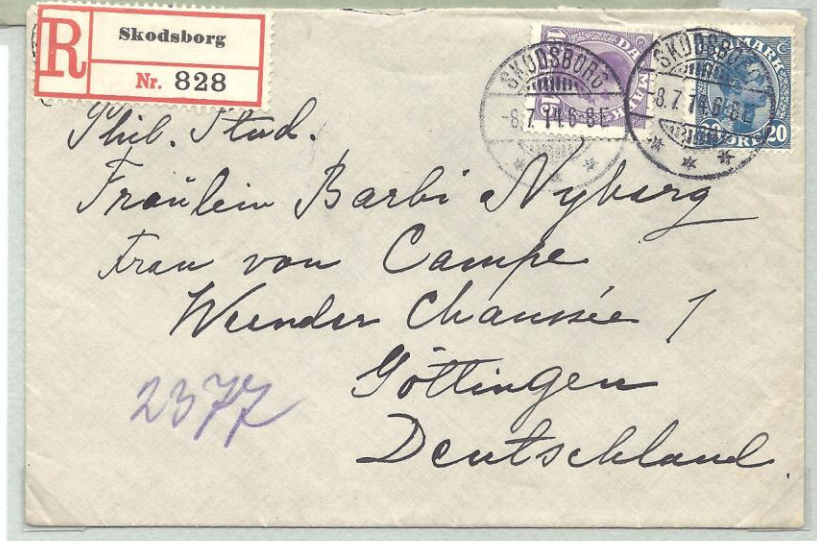 R
Skodsborg
Nr. 828
SKODSBORG
-8.7.14.6-8E.
SKODSBORG
-8.7.14.6-8E.
DANMARK
DANMARK
20 ØRE 20
Phil. Stud.
Fraülein Barbi Nyberg
Frau von Campe
Weender Chaussée 1
Göttingen
Deutschland.
2377